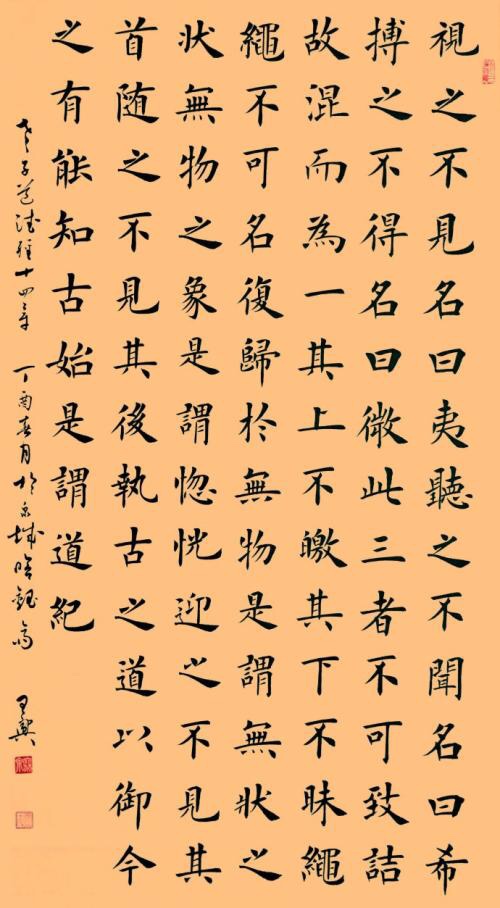 視之不見名曰夷聽之不聞名曰希
搏之不得名曰微此三者不可致詰
故混而為一其上不皦其下不昧繩
繩不可名復歸於無物是謂無狀之
狀無物之象是謂惚恍迎之不見其
首随之不見其後執古之道以御今
之有能知古始是謂道紀
老子道德經十四章 丁酉春月於泉城